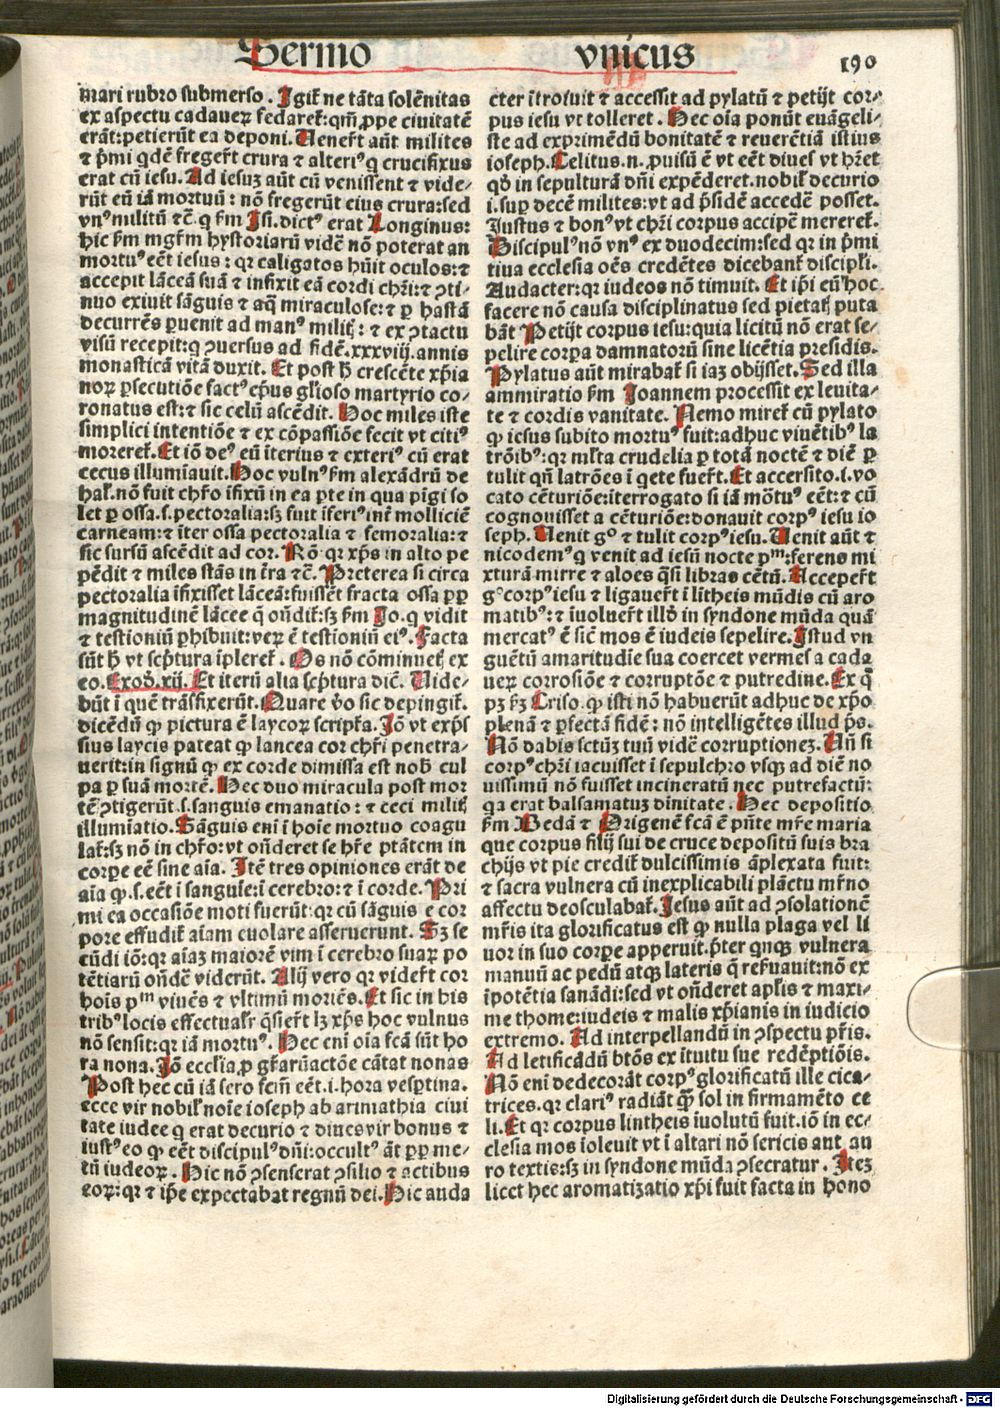 Sermo vnicus 190
mari rubro submerso. Igit̃ ne tāta solēnitas
ex aspectu cadaueꝝ fedaret̃: qm̄ ꝓpe ciuitatē
erāt: petierūt ea deponi. Venert̃ aūt milites
⁊ p̄mi qdē fregert̃ crura ⁊ alteriꝰ q̇ crucifixus
erat cū iesu. Ad iesuz aūt cū venissent ⁊ vide-
rūt eū iā mortuū: nō fregerūt eius crura: sed
vnꝰ militū ⁊c̄. q ẜm Isi. dictꝰ erat Longinus:
hic ẜm mgr̄m hystoriarū vidē nō poterat an
mortuꝰ eēt iesus: qꝛ caligatos hūit oculos: ⁊
accepit lāceā suā ⁊ infixit eā cordi chr̄i: ⁊ ꝯti-
nuo exiuit sāguis ⁊ aq̄ miraculose: ⁊ ꝑ hastā
decurrēs ꝑuenit ad manꝰ militꝭ: ⁊ ex ꝯtactu
visū recepit: q ꝯuersus ad fidē. xxxviij. annis
monasticā vitā duxit. Et post h̄ crescēte xp̄ia
noꝝ ꝑsecutiōe factꝰ ep̄us gl̄ioso martyrio co-
ronatus est: ⁊ sic celū ascēdit. Hoc miles iste
simplici intentiōe ⁊ ex cōpassiōe fecit vt citiꝰ
moreret̃. Et iō deꝰ eū īteriꝰ ⁊ exteriꝰ cū erat
cecus illumīauit. Hoc vulnꝰ ẜm alexādrū de
hal̃. nō fuit chr̄o īfixū in ea ꝑte in qua pīgi so
let ꝑ ossa. s. pectoralia: sꝫ fuit īferiꝰ int̃ molliciē
carneam: ⁊ īter ossa pectoralia ⁊ femoralia: ⁊
sic sursū ascēdit ad cor. Rō. qꝛ xp̄s in alto pe
pēdit ⁊ miles stās in t̄ra ⁊c̄. Preterea si circa
pectoralia īfixisset lāceā: fuissēt fracta ossa ꝓꝑ
magnitudinē lācee q̄ oñdit̃: sꝫ ẜm Jo. q vidit
⁊ testioniū ꝑhibuit: veꝝ ē testioniū eiꝰ. Facta
sūt h̄ vt sc̄ptura īpleret̃. Os nō cōminuetꝭ ex
eo. Exoð. xij. Et iterū alia sc̄ptura dic̄. Vide-
būt ī quē trāsfixerūt. Quare ꝟo sic depingit̃.
dicēdū ꝙ pictura ē laycoꝝ scriptr̄a. Jō vt exp̄s
sius laycis pateat ꝙ lancea cor chr̄i penetra-
uerit: in signū ꝙ ex corde dimissa est nob̄ cul
pa ꝑ suā mortē. Hec duo miracula post mor
tē ꝯtigerūt. s. sanguis emanatio: ⁊ ceci militꝭ
illumīatio. Sāguis eni ī hoīe mortuo coagu
lat̃: sꝫ nō in chr̄o: vt oñderet se hr̄e ptātem in
corꝑe eē sine aīa. Itē tres opiniones erāt de
aīa ꝙ. s. eēt ī sanguīe: ī cerebro: ⁊ ī corde. Pri
mi ea occasiōe moti fuerūt: qꝛ cū sāguis e cor
pore effudit̃ aīam euolare asseruerunt. Sꝫ se
cūdi iō: qꝛ aīaz maiorē vim ī cerebro suaꝝ po
tētiarū oñdē viderūt. Alij vero qꝛ videt̃ cor
hoīs pᵐ viuēs ⁊ vltimū moriēs. Et sic in his
tribꝰ locis effectualr̄ q̄sierūt lꝫ xp̄s hoc vulnus
nō sensit: qꝛ iā mortuꝰ. Hec eni oīa fcā sūt ho
ra nona. Jō eccl̄ia ꝓ gr̄aꝝactōe cātat nonas
Post hec cū iā sero fc̄m eēt. i. hora vesꝑtina.
ecce vir nobil̃ noīe ioseph ab arimathia ciui
tate iudee q erat decurio ⁊ diues vir bonus ⁊
iustꝰ eo ꝙ eēt discipulꝰ dn̄i: occultꝰ āt ꝓꝑ me-
tū iudeoꝝ. Hic nō ꝯsenserat ꝯsilio ⁊ actibus
eoꝝ: qꝛ ⁊ ip̄e expectabat regnū dei. Hic auda
cter ītroiuit ⁊ accessit ad pylatū ⁊ petijt cor-
pus iesu vt tolleret. Hec oīa ponūt euāgeli-
ste ad exprimēdū bonitatē ⁊ reuerētiā istius
ioseph. Celitus. n. ꝓuisū ē vt eēt diues vt hr̄et
qð in sepulturā dn̄i expēderet. nobil̃ decurio
i. suꝑ decē milites: vt ad p̄sidē accedē posset.
Justus ⁊ bonꝰ vt chr̄i corpus accipē mereret̃.
Discipulꝰ nō vnꝰ ex duodecim: sed qꝛ in p̄mi
tiua ecclesia oēs credētes dicebant̃ discipl̄i.
Audacter: qꝛ iudeos nō timuit. Et ip̄i eū hoc
facere nō causa disciplinatus sed pietatꝭ puta
bāt Petijt corpus iesu: quia licitū nō erat se-
pelire corꝑa damnatorū sine licētia presidis.
Pylatus aūt mirabat̃ si iaz obijsset. Sed illa
ammiratio ẜm Joannem processit ex leuita-
te ⁊ cordis vanitate. Nemo miret̃ cū pylato
ꝙ iesus subito mortuꝰ fuit: adhuc viuētibꝰ la
trōibꝰ: qꝛ ml̄ta crudelia ꝑ totā noctē ⁊ diē ꝑ
tulit qn̄ latrōes ī q̇ete fuert̃. Et accersito. i. vo
cato cēturiōe: īterrogato si iā mōtuꝰ eēt: ⁊ cū
cognouisset a cēturiōe: donauit corpꝰ iesu io
seph. Venit gº ⁊ tulit corpꝰ iesu. Venit aūt ⁊
nicodemꝰ q̇ venit ad iesū nocte pᵐ: ferens mi
xturā mirre ⁊ aloes q̄si libras cētū. Accepert̃
gº corpꝰ iesu ⁊ ligauert̃ ī lītheis mūdis cū aro
matibꝰ: ⁊ īuoluert̃ illð in syndone mūda quā
mercatꝰ ē sic̄ mos ē iudeis sepelire. Istud vn
guētū amaritudīe sua coercet vermes a cada
ueꝝ corrosiōe ⁊ corruptōe ⁊ putredine. Ex q̄
pꝫ ẜꝫ Criso. ꝙ isti nō habuerūt adhuc de xp̄o
plenā ⁊ ꝑfectā fidē: nō intelligētes illud p̄s.
Nō dabis sctūꝫ tuū vidē corruptionez. Vn̄ si
corpꝰ chr̄i iacuisset ī sepulchro vsqꝫ ad diē no
uissimū nō fuisset incineratū nec putrefactū:
qa erat balsamatuꝫ dīnitate. Hec depositio
ẜm Bedā ⁊ Origenē fcā ē p̄nte mr̄e maria
que corpus filij sui de cruce depositū suis bra
chijs vt pie credit̃ dulcissimis āplexata fuit:
⁊ sacra vulnera cū inexplicabili plāctu mr̄no
affectu deosculabat̃. Jesus aūt ad ꝯsolationē
mr̄is ita glorificatus est ꝙ nulla plaga vel li
uor in suo corꝑe apperuit. p̄ter qnqꝫ vulnera
manuū ac pedū atqꝫ lateris q̄ reẜuauit: nō ex
īpotētia sanādi: sed vt oñderet apl̄is ⁊ maxi-
me thome: iudeis ⁊ malis xp̄ianis in iudicio
extremo. Ad interpellandū in ꝯspectu pr̄is.
Ad letificādū btōs ex ītuitu sue redēptiōis.
Nō eni dedecorāt corpꝰ glorificatū ille cica-
trices. qꝛ clariꝰ radiāt ꝙ̄ sol in firmamēto ce
li. Et qꝛ corpus lintheis īuolutū fuit. iō in ec-
clesia mos ioleuit vt ī altari nō sericis aut au
ro textis: sꝫ in syndone mūda ꝯsecratur. Itez
licet hec aromatizatio xp̄i fuit facta in hono
Digitalisierung gefördert durch die Deutsche Forschungsgemeinschaft - DFG